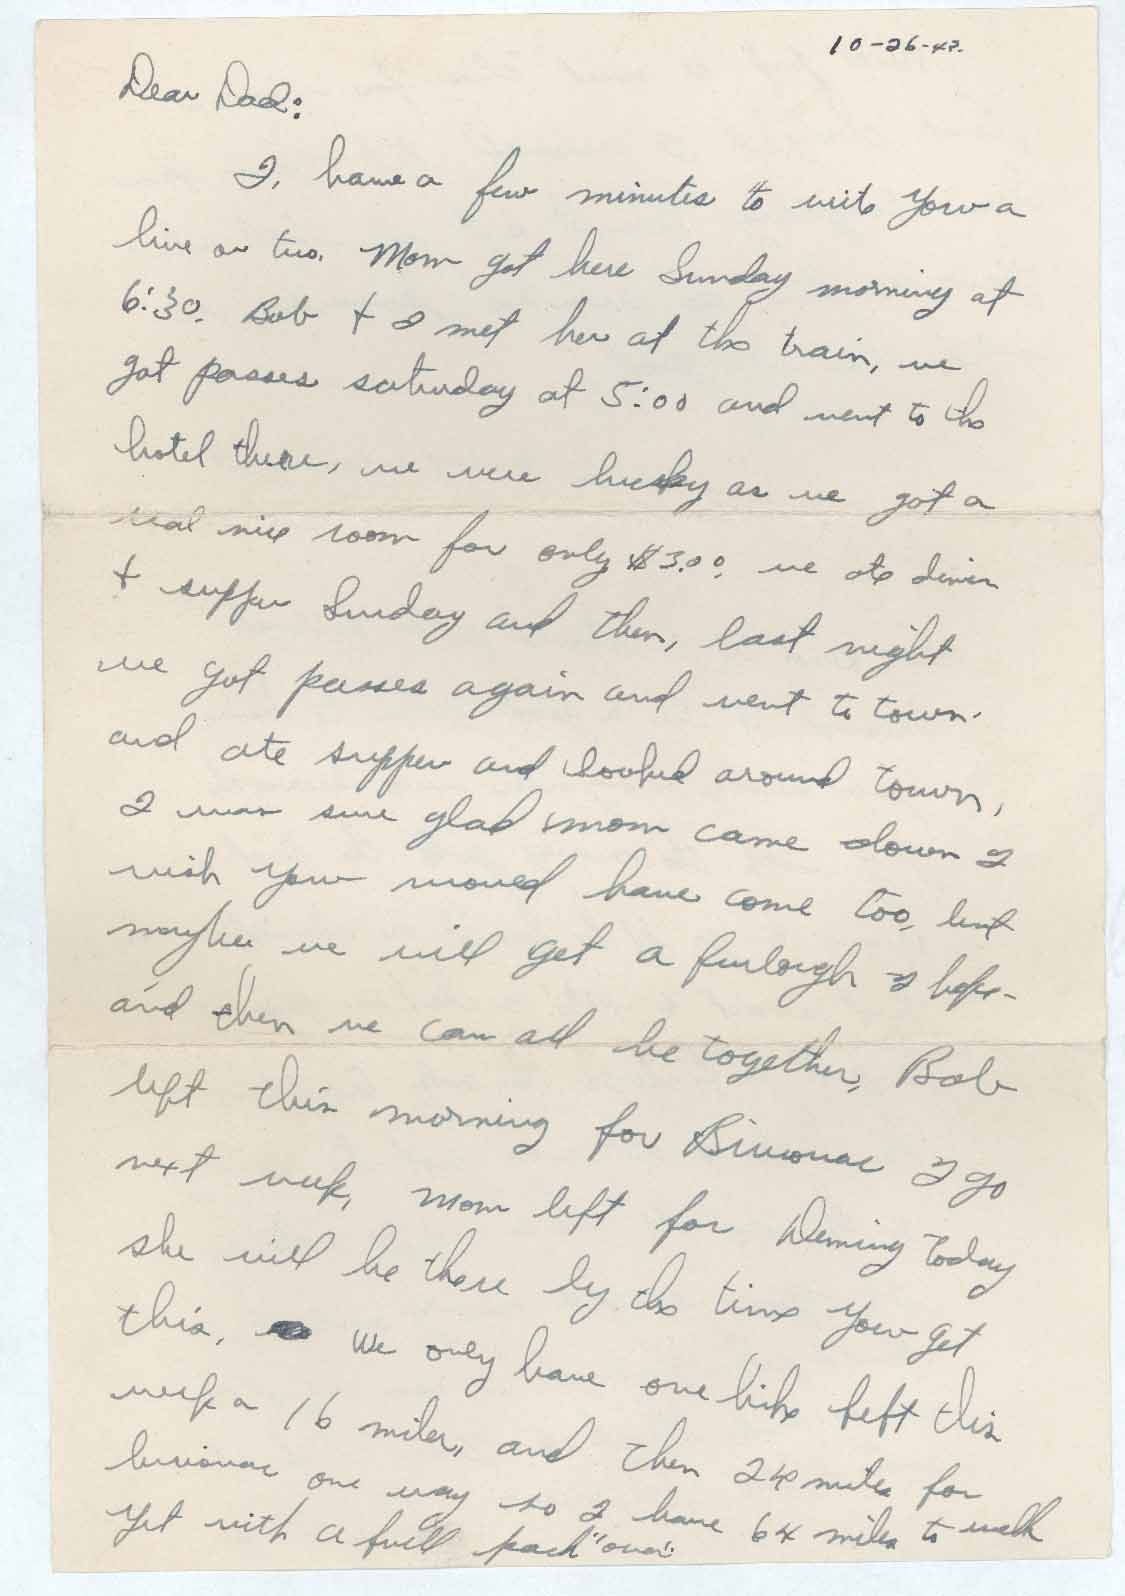 10-26-42.
Dear Dad:
I, have a few minutes to write you a
line or two. Mom got here Sunday morning at
6:30. Bob + I met her at the train, we
got passes saturday at 5:00 and went to the
hotel there, we were lucky as we got a
real nice room for only $3.00. we ate diner
+ supper Sunday and then, last night
we got passes again and went to town.
and ate supper and looked around town,
I was sure glad mom came down I
wish you would have come too, but
maybe we will get a furlough I hope-
and then we can all be together, Bob
left this morning for I go
next week, Mom left for Deming today
she will be there by the time you get
this, We only have one hike left this
week a 16 miler, and then 24 miles for
one way so I have 64 miles to walk
yet with a full pack "ouch".